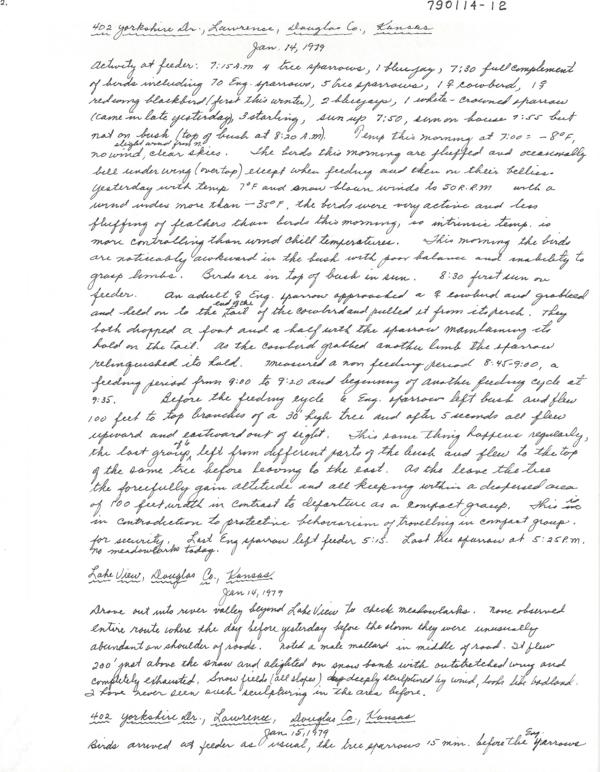 2.
790114-12
402 Yorkshire Dr., Lawrence, Douglas Co., Kansas
Jan. 14, 1979
Activity at feeder: 7:15 A.M 4 tree sparrows, 1 bluejay, 7:30 full complement
of birds including 70 Eng. sparrows, 5 tree sparrows, 1 ♀ cowbird, 1 ♀
redwing blackbird (first this winter), 2 bluejays, 1 white-crowned sparrow
(came in late yesterday), 3 starling, sun up 7:50, sun on house 7:55 but
not on bush (top of bush at 8:20 A.M). Temp this morning at 7:00 = -8°F,
slight wind from n
no wind, clear skies. The birds this morning are fluffed and occasionally
bill under wing (over top) except when feeding and then on their bellies.
Yesterday with temp 7°F and snow blown winds to 50 R.P.M with a
wind index more than -35°F, the birds were very active and less
fluffing of feathers than birds this morning, so intrinsic temp. is
more controlling than wind chill temperatures. This morning the birds
are noticeably awkward in the bush with poor balance and inability to
grasp limbs. Birds are in top of bush in sun. 8:30 first sun on
feeder. An adult ♀ Eng. sparrow approached a ♀ cowbird and grabbed
end of the
and held on to the tail of the cowbird and pulled it from its perch. They
both dropped a foot and a half with the sparrow maintaining its
hold on the tail. As the cowbird grabbed another limb the sparrow
relinquished its hold. Measured a non feeding period 8:45-9:00, a
feeding period from 9:00 to 9:20 and beginning of another feeding cycle at
9:35. Before the feeding cycle 6 Eng. sparrow left bush and flew
100 feet to top branches of a 30' high tree and after 5 seconds all flew
upward and eastward out of sight. This same thing happens regularly,
the last group, left from different parts of the bush and flew to the top
of the same tree before leaving to the east. As the leave the tree
the forcefully gain altitude and all keeping within a dispersed area
of 100 feet width in contrast to departure as a compact group. This is
in contradiction to protective behaviorism of travelling in compact group.
for security. Last Eng sparrow left feeder 5:15. Last tree sparrow at 5:25 P.M.
no meadowlarks today.
Lake View, Douglas Co., Kansas
Jan 14, 1979
Drove out into river valley beyond Lake View to check meadowlarks. none observed
entire route where the day before yesterday before the storm they were unusually
abundant on shoulder of roads. noted a male mallard in middle of road. It flew
200' just above the snow and alighted on snow bank with outstretched wing and
completely exhausted. Snow fields (all slopes) deeply sculptured by wind, looks like badland.
I have never seen such sculpturing in the area before.
402 Yorkshire Dr., Lawrence, Douglas Co., Kansas
Jan 15, 1979
Birds arrived at feeder as usual, the tree sparrows 15 mm. before the Eng. sparrows